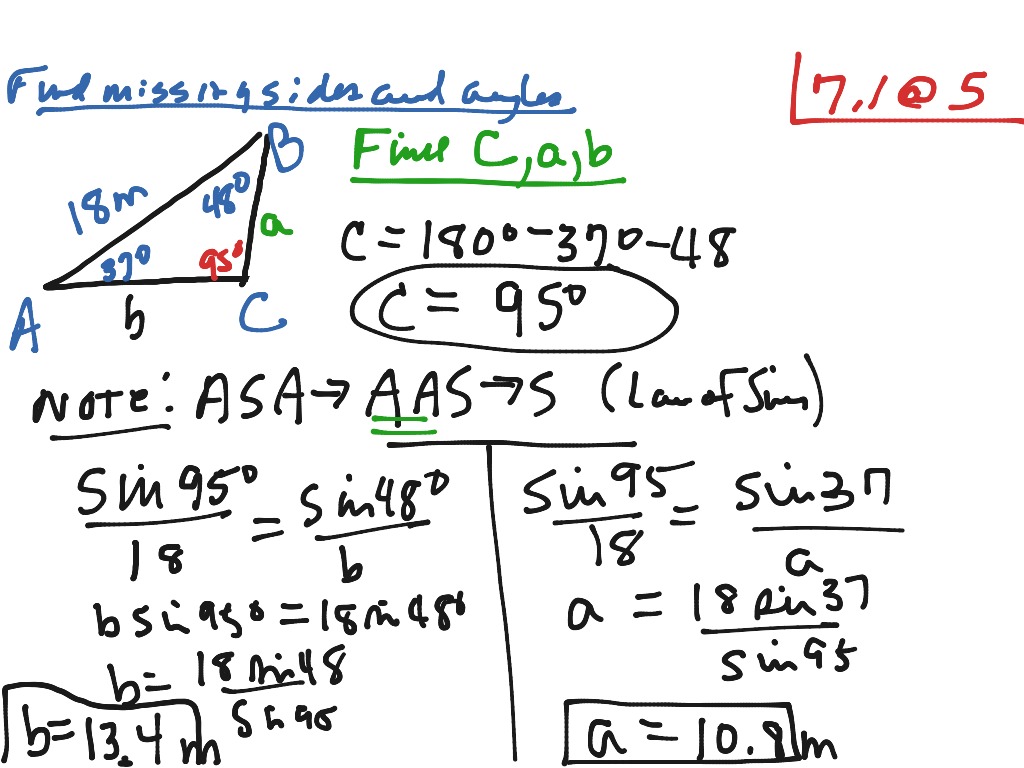 Find missing sides and angles
7.1 @ 5
B
Find C, a, b
18m
48°
a
37°
95°
C = 180° - 37° - 48
A
b
C
C = 95°
Note: ASA → AAS → S (Law of Sines)
sin 95° / 18 = sin 48° / b
sin 95 / 18 = sin 37 / a
b sin 95° = 18 sin 48°
a = 18 sin 37 / sin 95
b = 18 sin 48 / sin 95
b = 13.4 m
a = 10.8 m